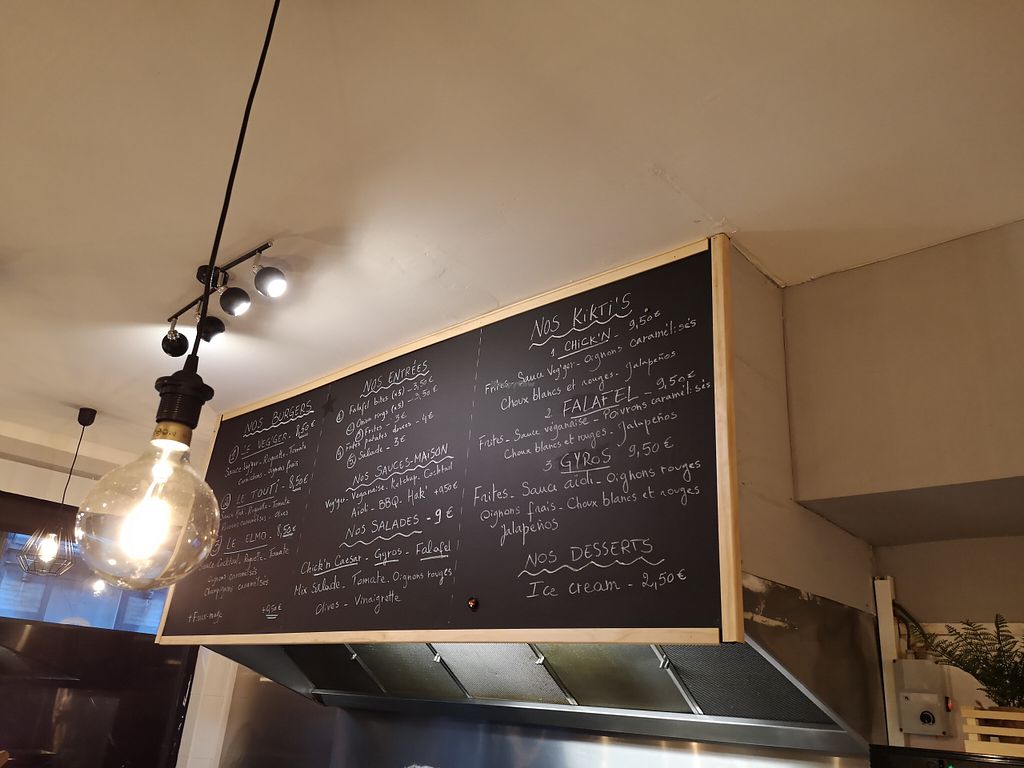 NOS BURGERS
① LE VEG'GER. 8,50€
Sauce Veg'ger. Roquette. Tomate
Cornichons. oignons frais
② LE TOUTI - 8,50€
Roquette. Tomate
caramélisés
③ LE ELMO. 8,50€
Sauce Cocktail. Roquette. Tomate
oignons caramélisés
Champignons caramélisés
+0,50€
NOS ENTRÉES
① Falafel bites (x5) - 3,50€
② Onion rings (x5) - 3,50€
③ Frites - 3€
④ Frites patates douces - 4€
⑤ Salade - 3€
NOS SAUCES-MAISON
Veg'ger. Véganaise. Ketchup. Cocktail
Aioli - BBQ. Hak' +0,50€
NOS SALADES - 9€
Chick'n Caesar. Gyros - Falafel
Mix Salade. Tomate. Oignons rouges
Olives - Vinaigrette
NOS KiKTi'S
1. CHICK'N - 9,50€
Frites. Sauce Veg'ger - Oignons caramélisés
Choux blancs et rouges - Jalapeños
2. FALAFEL - 9,50€
Frites - Sauce véganaise - Poivrons caramélisés
Choux blancs et rouges. Jalapeños
3 GYROS 9,50€
Frites - Sauce aïoli - Oignons rouges
Oignons frais - Choux blancs et rouges
Jalapeños
NOS DESSERTS
Ice cream - 2,50€